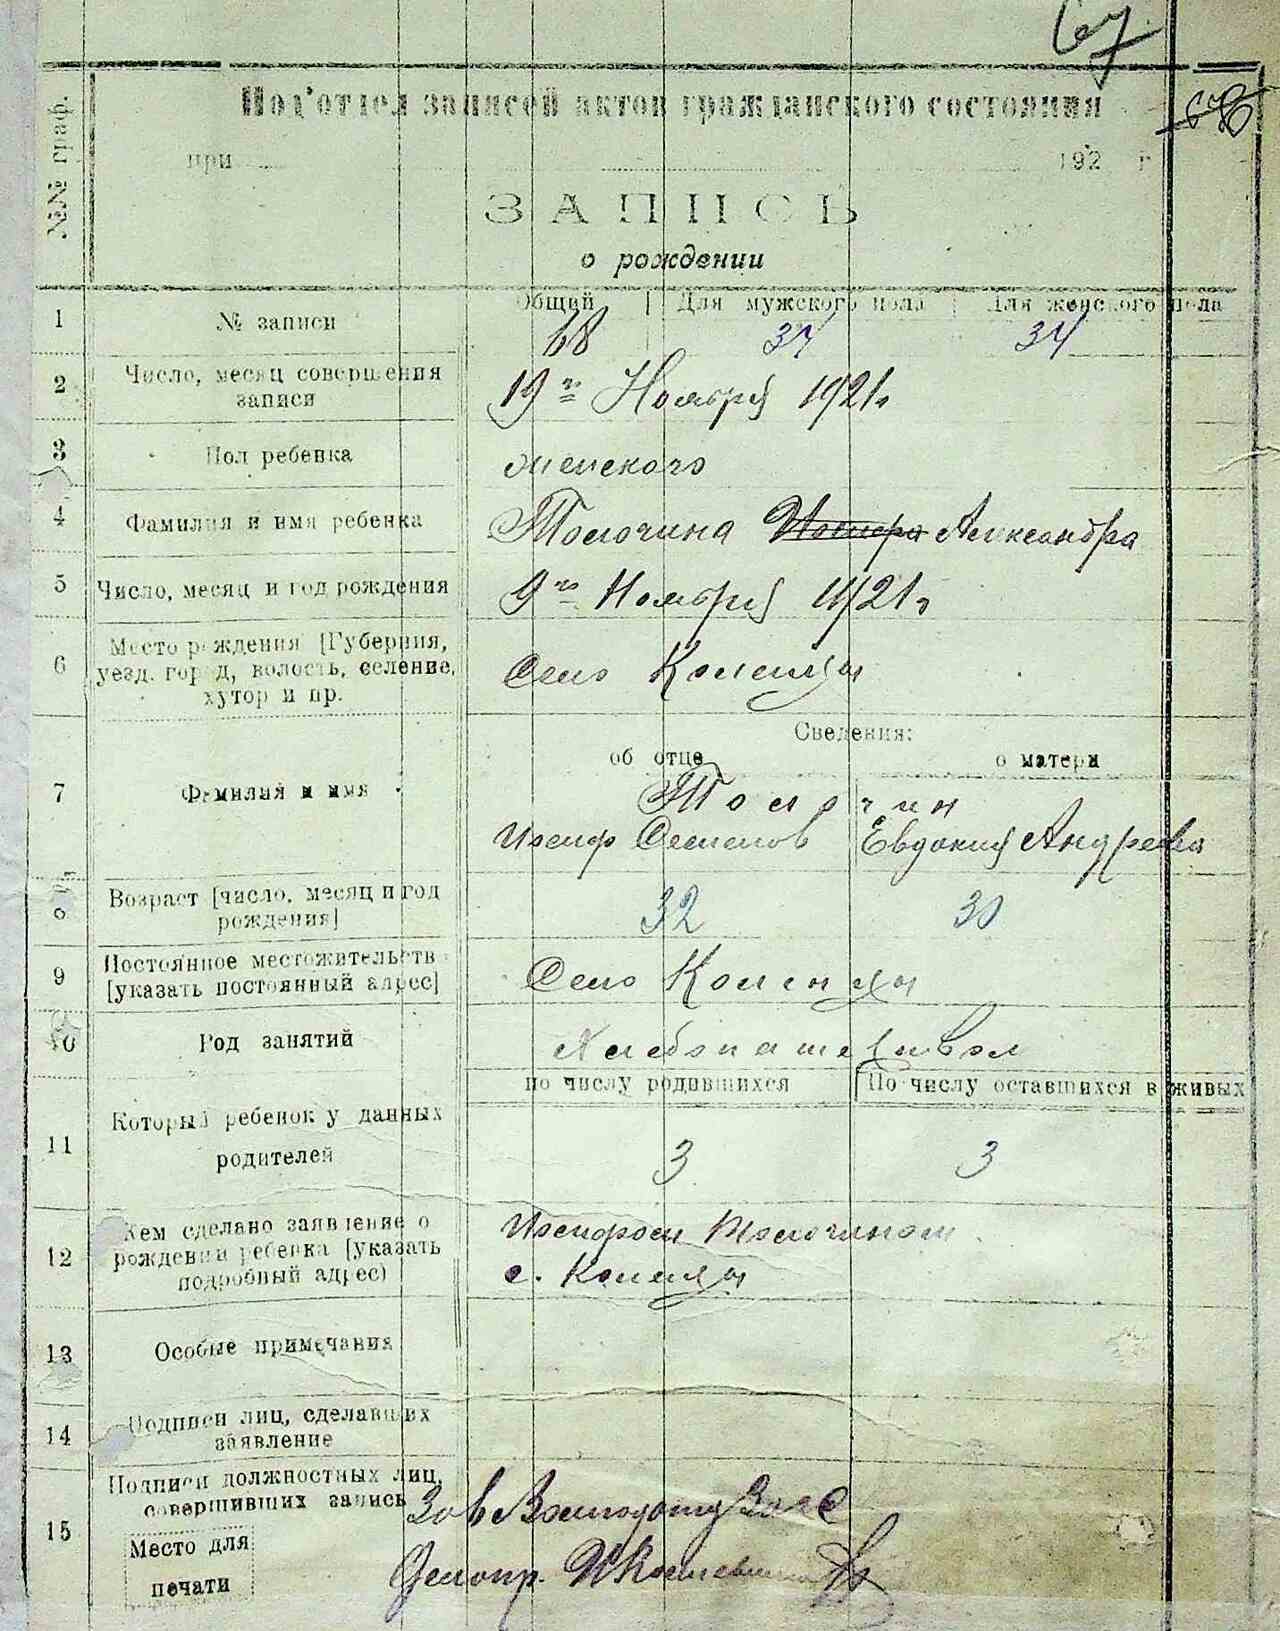 67
Под'отдел записей актов гражданского состояния
№№ граф.
при 192 г
ЗАПИСЬ
о рождении
Общий Для мужского пола Для женского пола
1 № записи 68 34
2 Число, месяц совершения
записи
19го Ноября 1921г
3 Пол ребенка женского
4 Фамилия и имя ребенка Толочина Александра
5 Число, месяц и год рождения 9го Ноября 1921г
6 Место рождения [Губерния,
уезд. город, волость, селение,
хутор и пр.
Село
Сведения:
об отце о матери
7 Фамилия и имя Толочин
Иосиф Семенов Евдокия Андреева
8 Возраст [число, месяц и год
рождения]
32 30
9 Постоянное местожительств
[указать постоянный адрес]
Село
10 Род занятий Хлебопашеством
по числу родившихся По числу оставшихся в живых
11 Который ребенок у данных
родителей
3 3
12 Кем сделано заявление о
рождении ребенка [указать
подробный адрес)
Иосифом Толочином
с.
13 Особые примечания
14 Подписи лиц, сделавших
заявление
15 Подписи должностных лиц,
совершивших запись
Зав
Место для
печати
Делопр.